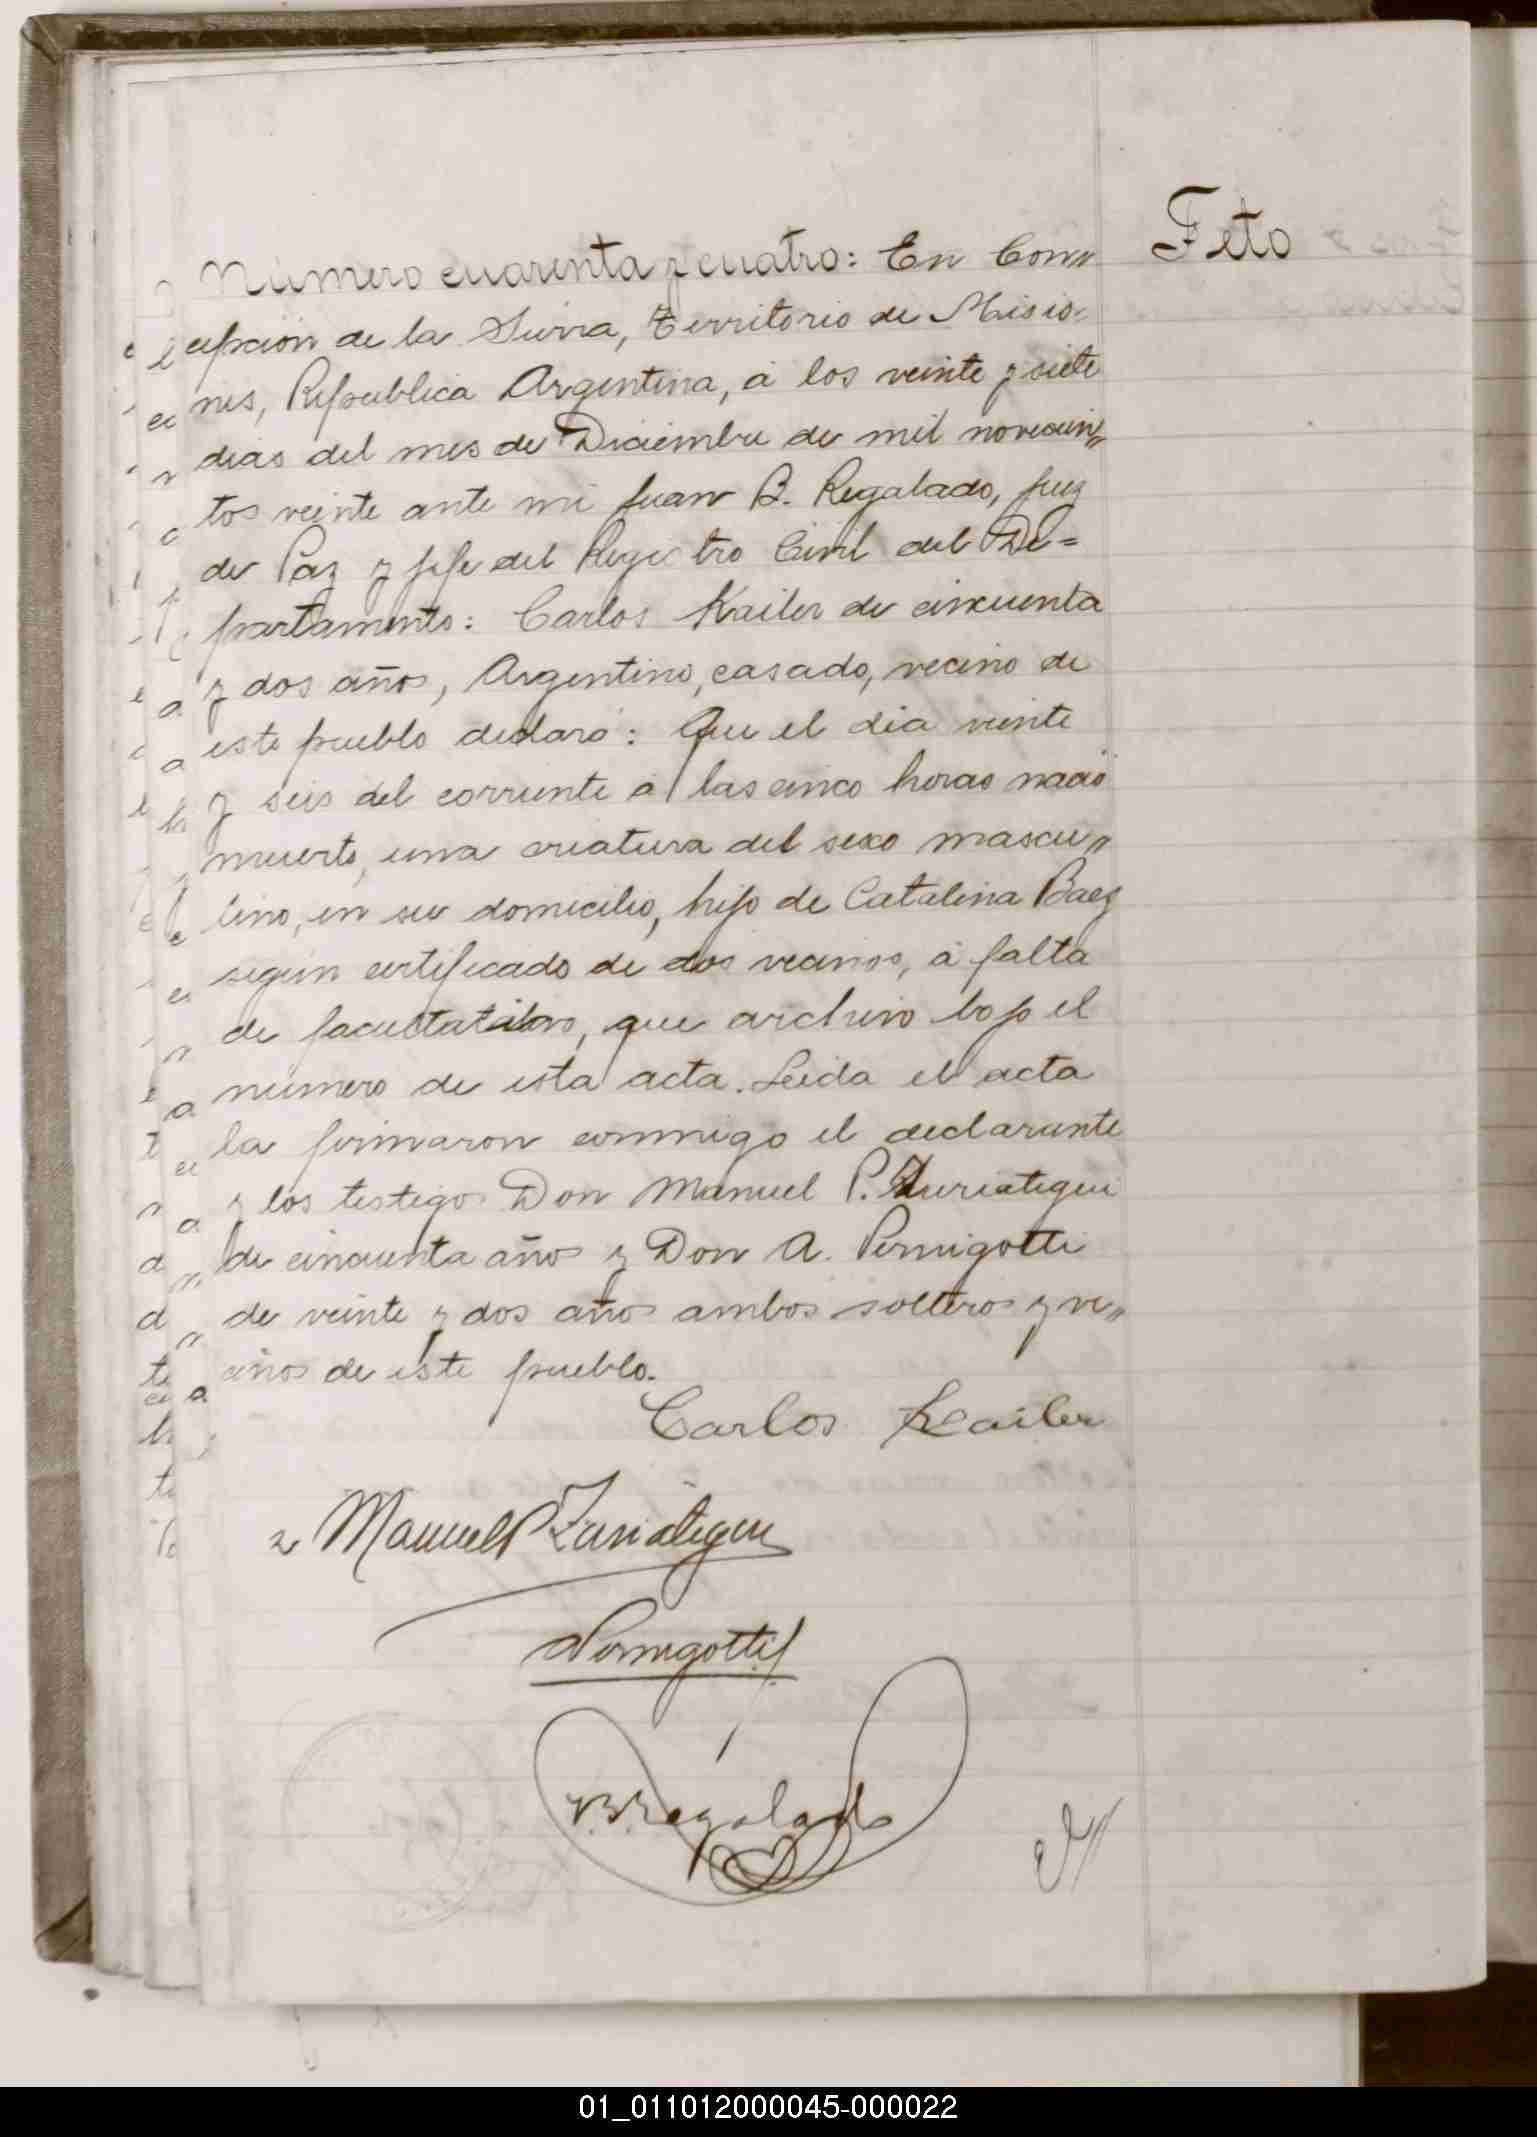 Feto
Número cuarenta y cuatro: En Con„
cepción de la Sierra, Territorio de Misio-
nes, Republica Argentina, á los veinte y siete
dias del mes de Diciembre de mil novecien„
tos veinte ante mi Juan B. Regalado, Juez
de Paz y Jefe del Registro Civil del De=
partamento: Carlos Kailer de cincuenta
y dos años, Argentino, casado, vecino de
este pueblo declaró: Que el dia veinte
y seis del corriente á las cinco horas nació
muerto, una criatura del sexo mascu„
lino, en su domicilio, hijo de Catalina Baez
segun certificado de dos vecinos, á falta
de facultativos, que archivo bajo el
numero de esta acta. Leida el acta
la firmaron conmigo el declarante
y los testigos Don Manuel P. Zuriategui
de cincuenta años y Don A. Pernigotti
de veinte y dos años ambos solteros y ve„
cinos de este pueblo.
Carlos Kailer
Manuel P Zuriategui
Pernigotti
J.B. Regalado
01_011012000045-000022